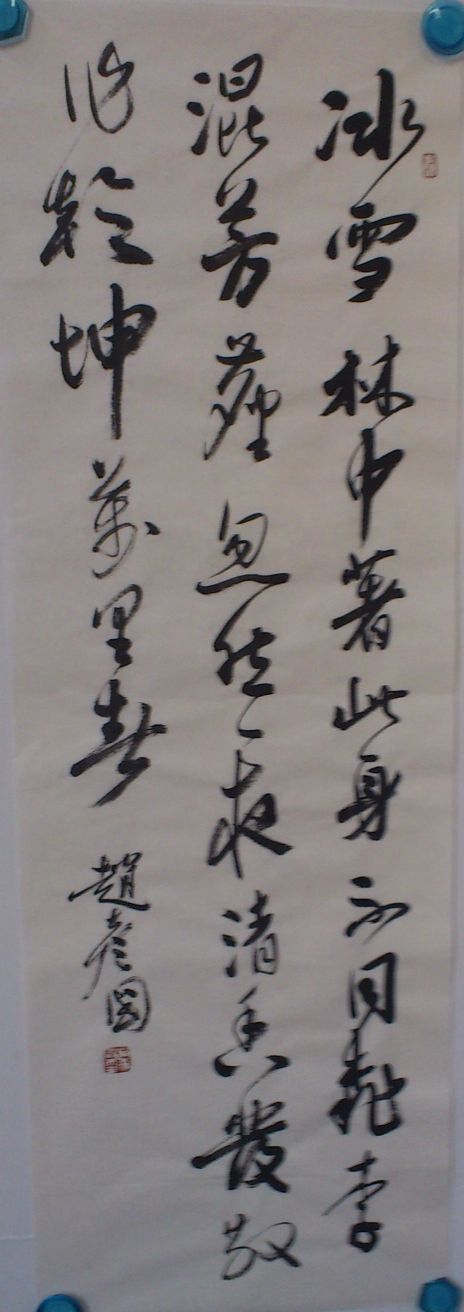 冰雪林中著此身不同桃李
混芳塵忽然一夜清香發散
作乾坤萬里春
趙彥國